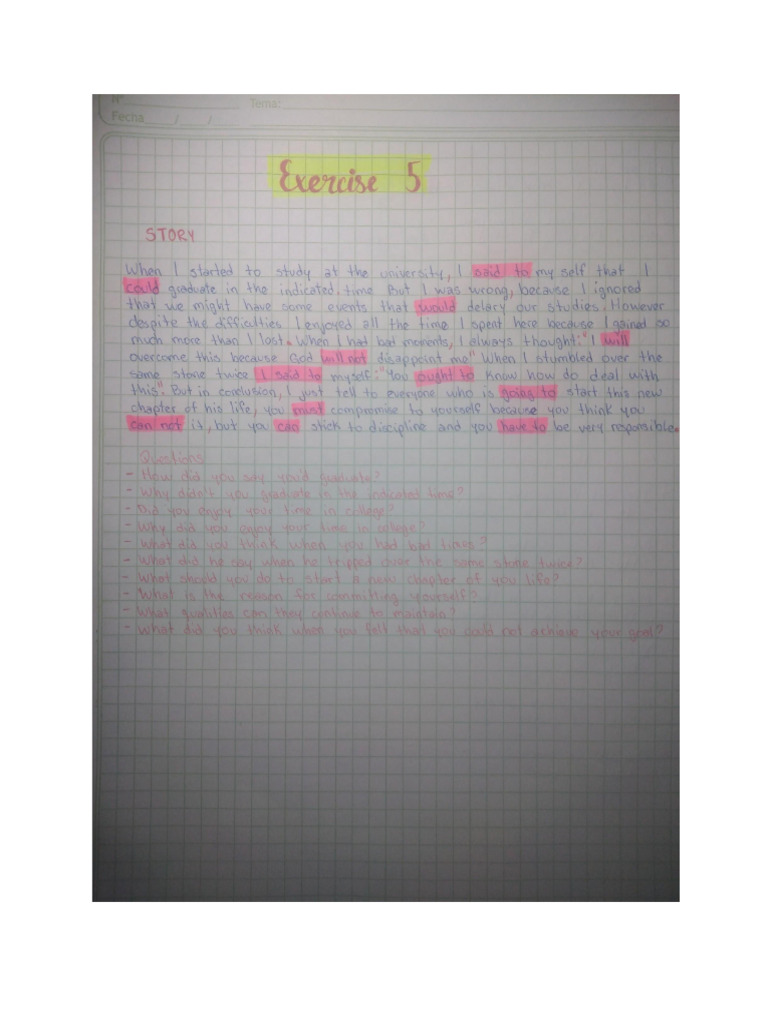 N°
Tema:
Fecha / /
Exercise 5
STORY
When I started to study at the university, I said to my self that I
could graduate in the indicated time. But I was wrong, because I ignored
that we might have some events that would delary our studies. However
despite the difficulties I enjoyed all the time I spent here because I gained so
much more than I lost. When I had bad moments, I always thought: "I will
overcome this because God will not disappoint me" When I stumbled over the
same stone twice I said to myself: "You ought to know how do deal with
this". But in conclusion, I just tell to everyone who is going to start this new
chapter of his life, you must compromise to yourself because you think you
can not it, but you can stick to discipline and you have to be very responsible.
Questions
- How did you say you'd graduate?
- Why didn't you graduate in the indicated time?
- Did you enjoy your time in college?
- Why did you enjoy your time in college?
- What did you think when you had bad times?
- What did he say when he tripped over the same stone twice?
- What should you do to start a new chapter of you life?
- What is the reason for committing yourself?
- What qualities can they continue to maintain?
- What did you think when you felt that you could not achieve your goal?